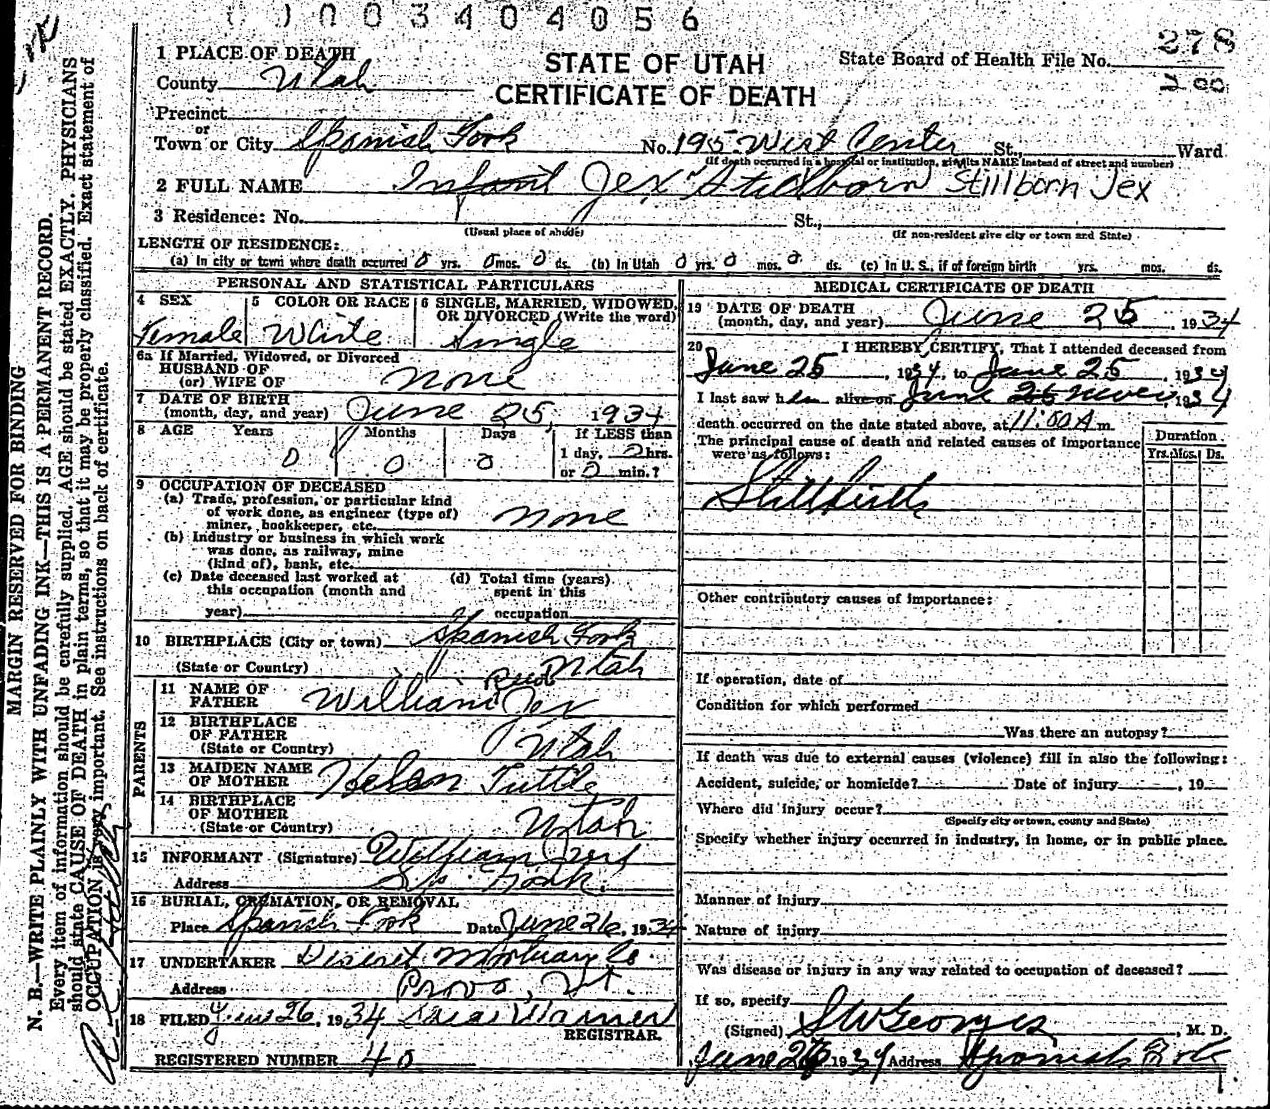 003404056
278
1 PLACE OF DEATH
STATE OF UTAH
State Board of Health File No.
County Utah
CERTIFICATE OF DEATH
Precinct
or
Town or City Spanish Fork No. 195 West Center St., Ward
(If death occurred in a hospital or institution, give its NAME instead of street and number)
2 FULL NAME Infant Jex Stillborn Stillborn Jex
3 Residence: No. St.,
(Usual place of abode) (If non-resident give city or town and State)
LENGTH OF RESIDENCE:
(a) In city or town where death occurred 0 yrs. 0 mos. 0 ds. (b) In Utah 0 yrs. 0 mos. 0 ds. (c) In U. S., if of foreign birth yrs. mos. ds.
PERSONAL AND STATISTICAL PARTICULARS
4 SEX 5 COLOR OR RACE 6 SINGLE, MARRIED, WIDOWED, OR DIVORCED (Write the word)
Female White Single
6a If Married, Widowed, or Divorced
HUSBAND OF
(or) WIFE OF none
7 DATE OF BIRTH
(month, day, and year) June 25, 1934
8 AGE Years Months Days If LESS than
0 0 0 1 day, 0 hrs.
or 0 min.?
9 OCCUPATION OF DECEASED
(a) Trade, profession, or particular kind
of work done, as engineer (type of)
miner, bookkeeper, etc. none
(b) Industry or business in which work
was done, as railway, mine
(kind of), bank, etc.
(c) Date deceased last worked at
this occupation (month and
year)
(d) Total time (years)
spent in this
occupation
10 BIRTHPLACE (City or town) Spanish Fork
(State or Country) Utah
PARENTS
11 NAME OF
FATHER William Jex
12 BIRTHPLACE
OF FATHER
(State or Country) Utah
13 MAIDEN NAME
OF MOTHER Helen Tuttle
14 BIRTHPLACE
OF MOTHER
(State or Country) Utah
15 INFORMANT (Signature) William
Address Sp. Fork.
16 BURIAL, CREMATION, OR REMOVAL
Place Spanish Fork Date June 26, 1934
17 UNDERTAKER Deseret Mortuary Co.
Address Provo, Ut.
18 FILED June 26, 1934
REGISTRAR.
REGISTERED NUMBER 40
MEDICAL CERTIFICATE OF DEATH
19 DATE OF DEATH
(month, day, and year) June 25, 1934
20 I HEREBY CERTIFY, That I attended deceased from
June 25, 1934, to June 25, 1934
I last saw h alive on June 25 never, 1934
death occurred on the date stated above, at 11:00 A m.
The principal cause of death and related causes of importance
were as follows:
Duration
Yrs. Mos. Ds.
Stillbirth
Other contributory causes of importance:
If operation, date of
Condition for which performed
Was there an autopsy?
If death was due to external causes (violence) fill in also the following:
Accident, suicide, or homicide? Date of injury , 19
Where did injury occur?
(Specify city or town, county and State)
Specify whether injury occurred in industry, in home, or in public place.
Manner of injury
Nature of injury
Was disease or injury in any way related to occupation of deceased?
If so, specify
(Signed) , M. D.
June 26 1934 Address Spanish Fork
MARGIN RESERVED FOR BINDING
N. B.—WRITE PLAINLY WITH UNFADING INK—THIS IS A PERMANENT RECORD.
Every item of information should be carefully supplied. AGE should be stated EXACTLY. PHYSICIANS
should state CAUSE OF DEATH in plain terms, so that it may be properly classified. Exact statement of
OCCUPATION is very important. See instructions on back of certificate.